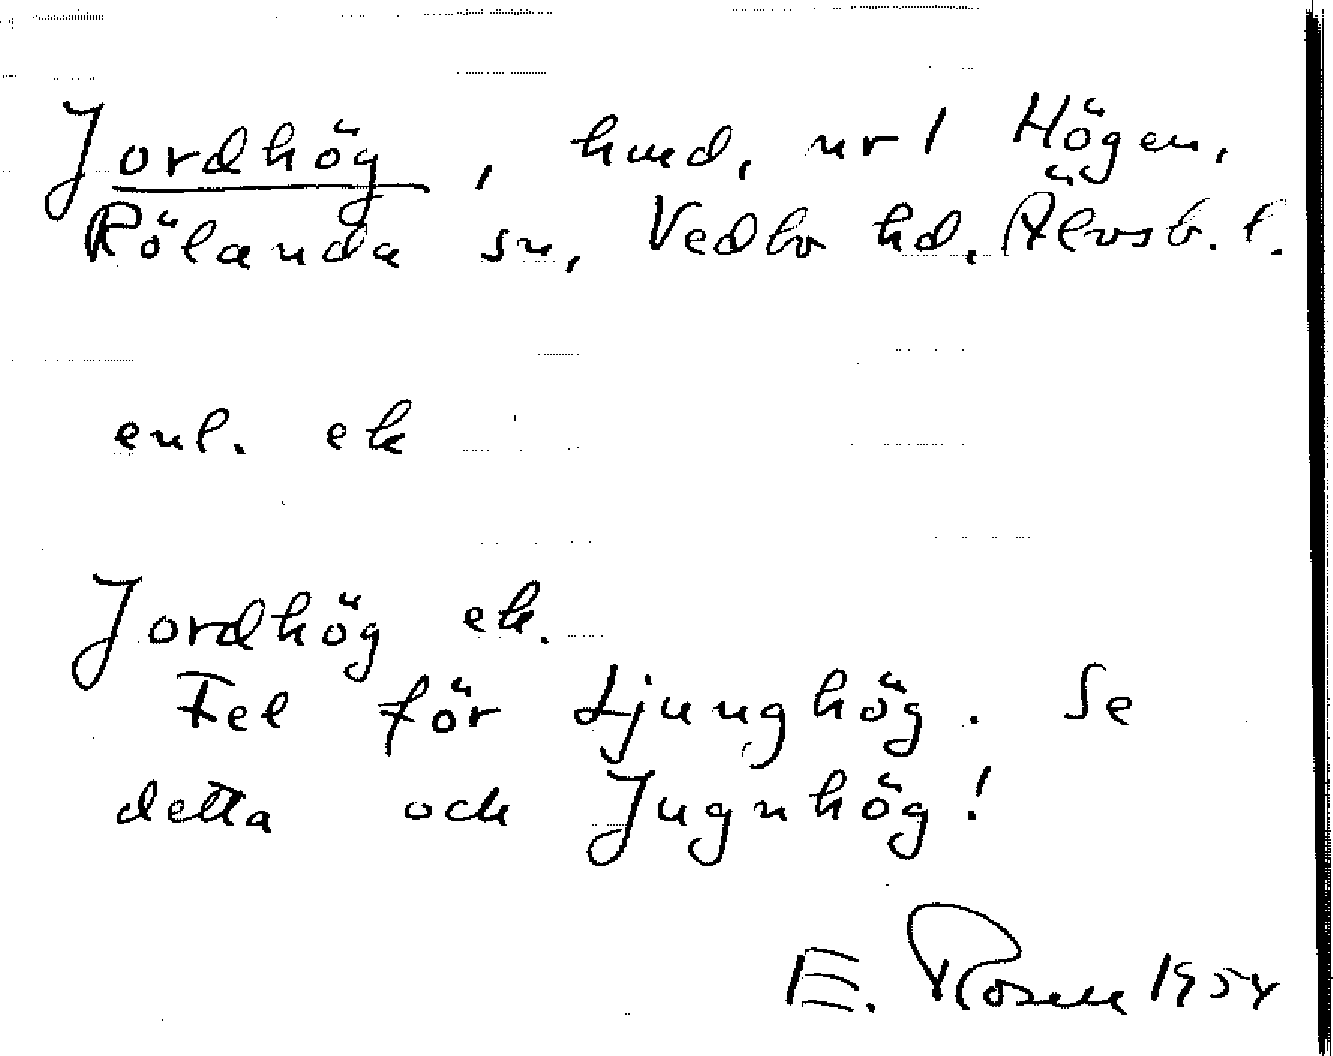 Jordhög, hmd, nr 1 Högen,
Rölanda sn, Vedbo hd. Älvsb. l.
enl. ek
Jordhög ek.
Fel för Ljunghög. Se
detta och Jugnhög!
E. Rosell 1954